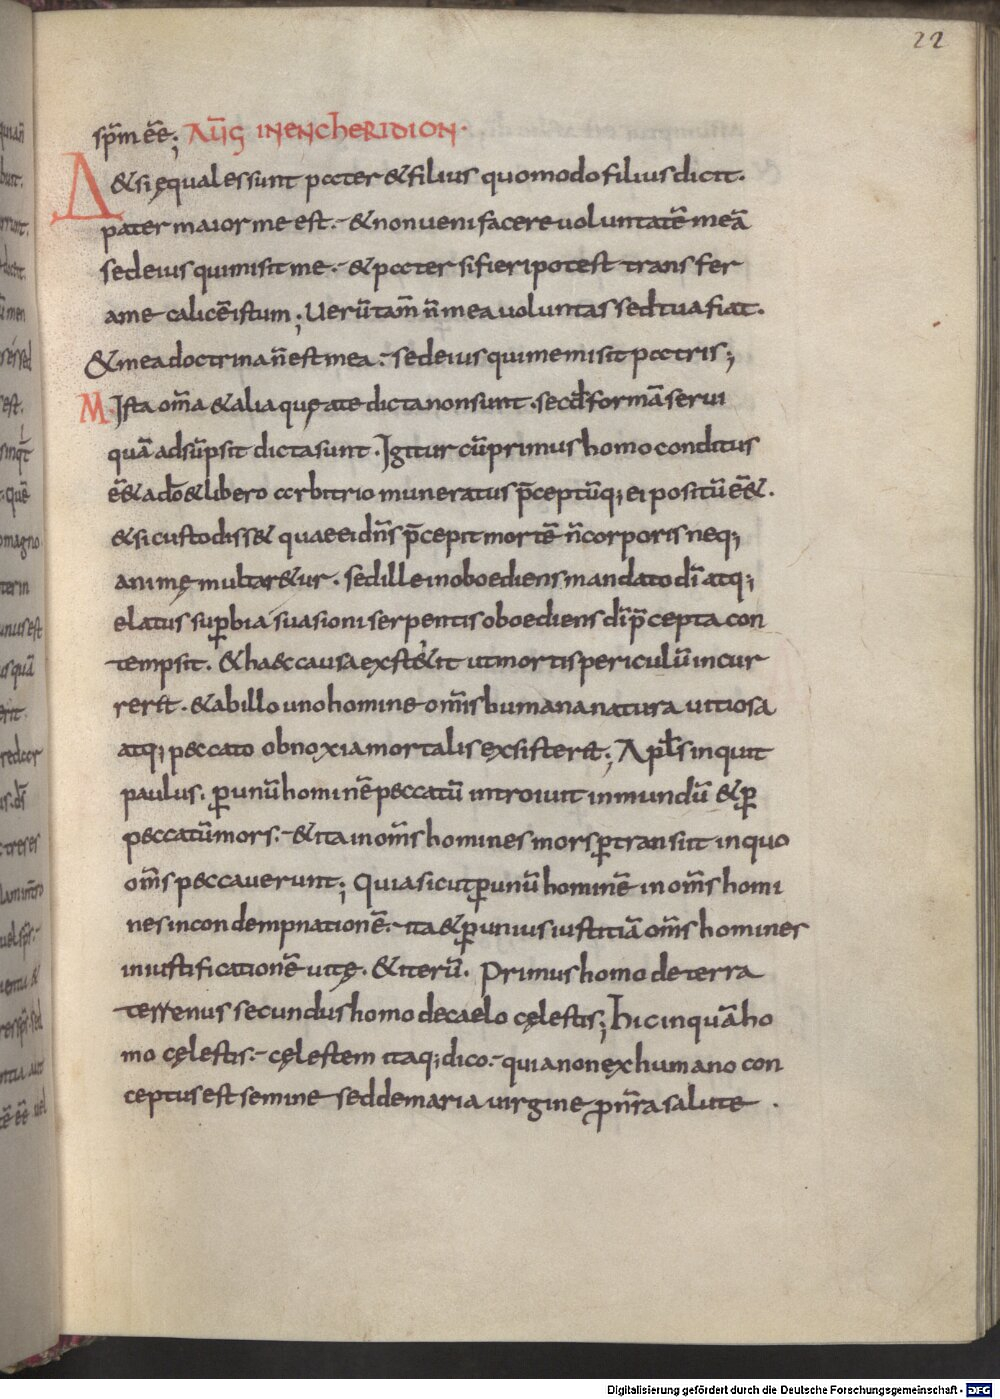 22
sp̄m ēē; AUḠ IN ENCHERIDION·
Δ &si ęquales sunt pater & filius quomodo filius dicit.
pater maior me est. & non veni facere voluntatē meā
sed eius qui misit me. & pater si fieri potest transfer
a me calicē istum; Uerūtam̄ n̄ mea voluntas sed tua fiat.
& mea doctrina n̄ est mea. sed eius qui me misit patris;
M Ista om̄a & alia que a te dicta non sunt. secd̄ formā servi
quā adsūpsit dicta sunt. Igitur cū primus homo conditus
ēē& a dō & libero arbitrio muneratus p̄ceptūq; ei positū ēē&.
& si custodiss& quae ei dn̄s p̄cepit mortē n̄ corporis neq;
animę multar&ur. sed ille inoboediens mandato dī atq;
elatus suꝑbia suasioni serpentis oboediens dī p̄cepta con
tempsit. & haec causa exstitit ut mortis periculū incur
rer&. & ab illo uno homine om̄is humana natura uitiosa
atq; peccato obnoxia mortalis exsister&; Apl̄s inquit
paulus. ꝑ unū hominē peccatū introiuit in mundū & ꝑ
peccatū mors. & ita in om̄s homines mors ꝑtransiit in quo
om̄s peccaverunt; Quia sicut ꝑ unū hominē in om̄s homi
nes in condempnationē. ita & ꝑ unius iustitiā om̄s homines
in iustificationē uitę. & iterū. Primus homo de terra
terrenus secundus homo de caelo cęlestis; hic inquā ho
mo cęlestis. cęlestem itaq; dico. quia non ex humano con
ceptus est semine sed de maria virgine ꝓ nr̄a salute.
Digitalisierung gefördert durch die Deutsche Forschungsgemeinschaft - DFG